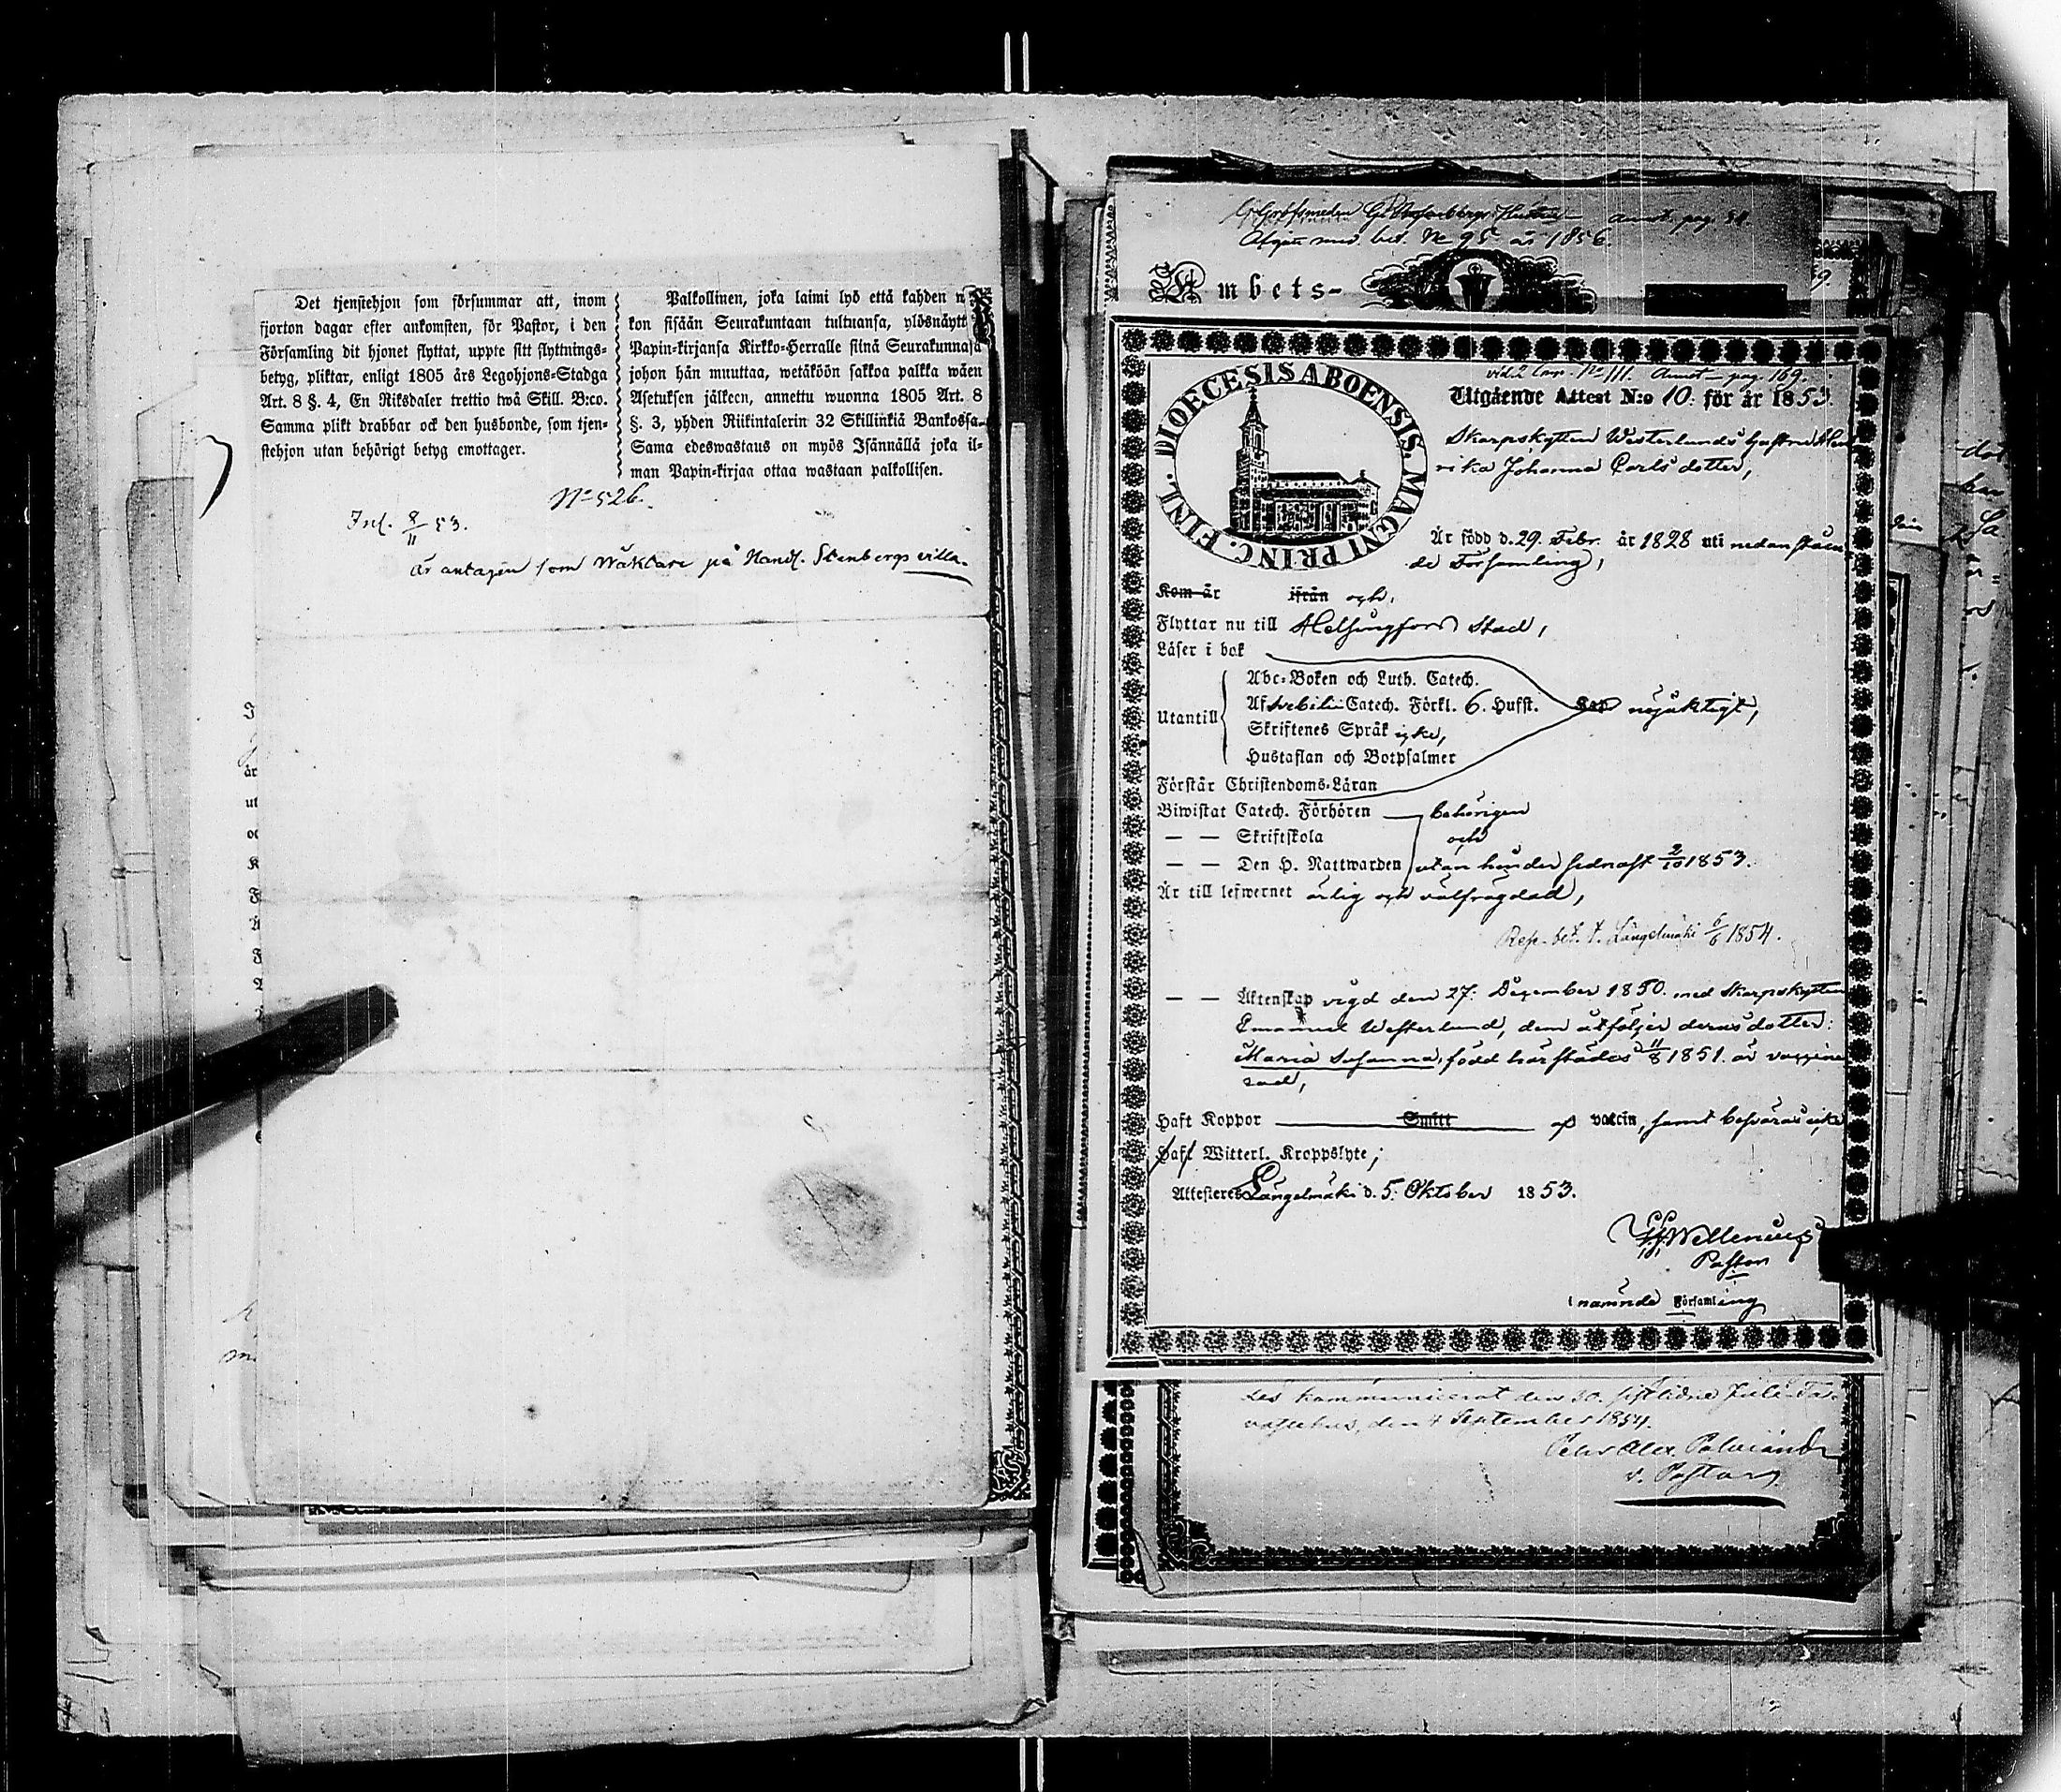 Det tjenstehjon som försummar att, inom
fjorton dagar efter ankomsten, för Pastor, i den
Församling dit hjonet flyttat, uppte sitt flyttnings-
betyg, pliktar, enligt 1805 års Legohjons-Stadga
Art. 8 §. 4, En Riksdaler trettio twå Skill. B:co.
Samma plikt drabbar ock den husbonde, som tjen-
stehjon utan behörigt betyg emottager.
Palkollinen, joka laimi lyö että kahden
kon sisään Seurakuntaan tultuansa, ylösnäytt
Papin-kirjansa Kirkko-Herralle siinä Seurakunnasa
johon hän muuttaa, wetäköön sakkoa palkka wäen
Asetuksen jälkeen, annettu wuonna 1805 Art. 8
§. 3, yhden Riikintalerin 32 Skillinkiä Bankossa.
Sama edeswastaus on myös Isännällä joka il-
man Papin-kirjaa ottaa wastaan palkollisen.
No 526.
Inl. 8/11 53.
är antagen som Wäktare på Handl. Stenbergs villa.
Annot. pag. 81.
Afgån med bet. No 95 år 1856.
Ambets-
DIOECESIS ABOENSIS. MAGNI PRINC. FINL.
vid 2 Annot pag. 169.
Utgående Attest N:o 10. för år 1853.
Skarpskytten Westerlunds hustru Hen
rika Johanna Carlsdotter,
Är född d. 29. Febr. år 1828 uti nedanståen
de Församling,
Kom år ifrån och,
Flyttar nu till Helsingfors Stad,
Läser i bok
Utantill
Abc-Boken och Luth. Catech.
Af Svebilii Catech. Förkl. 6. Hufst. nöjaktigt,
Skriftenes Språk icke,
Hustaflan och Botpsalmer
Förstår Christendoms-Läran
Biwistat Catech. Förhören behörigen
— — Skriftskola och
— — Den H. Nattwarden utan hinder sednast 2/10 1853.
Är till lefwernet ärlig och välfrägdad,
Rep. bet. t. Längelmäki 6/6 1854.
— — Äktenskap vigd den 27: Dezember 1850. med Skarpskytten
Emanuel Westerlund, dem åtföljer deras dotter:
Maria Susanna, född härstädes d 11/8 1851. är vaccine
rad,
Haft Koppor Smitt af vaccin, samt besväras icke
Haft Witterl. Kroppslyte;
Attesteres Längelmäki d. 5: Oktober 1853.
Wellenius
Pastor
i nämnde Församling
les kommunicerat den 30. sistlidne Juli. Ta-
vastehus, den 4 September 1854.
v. Pastor